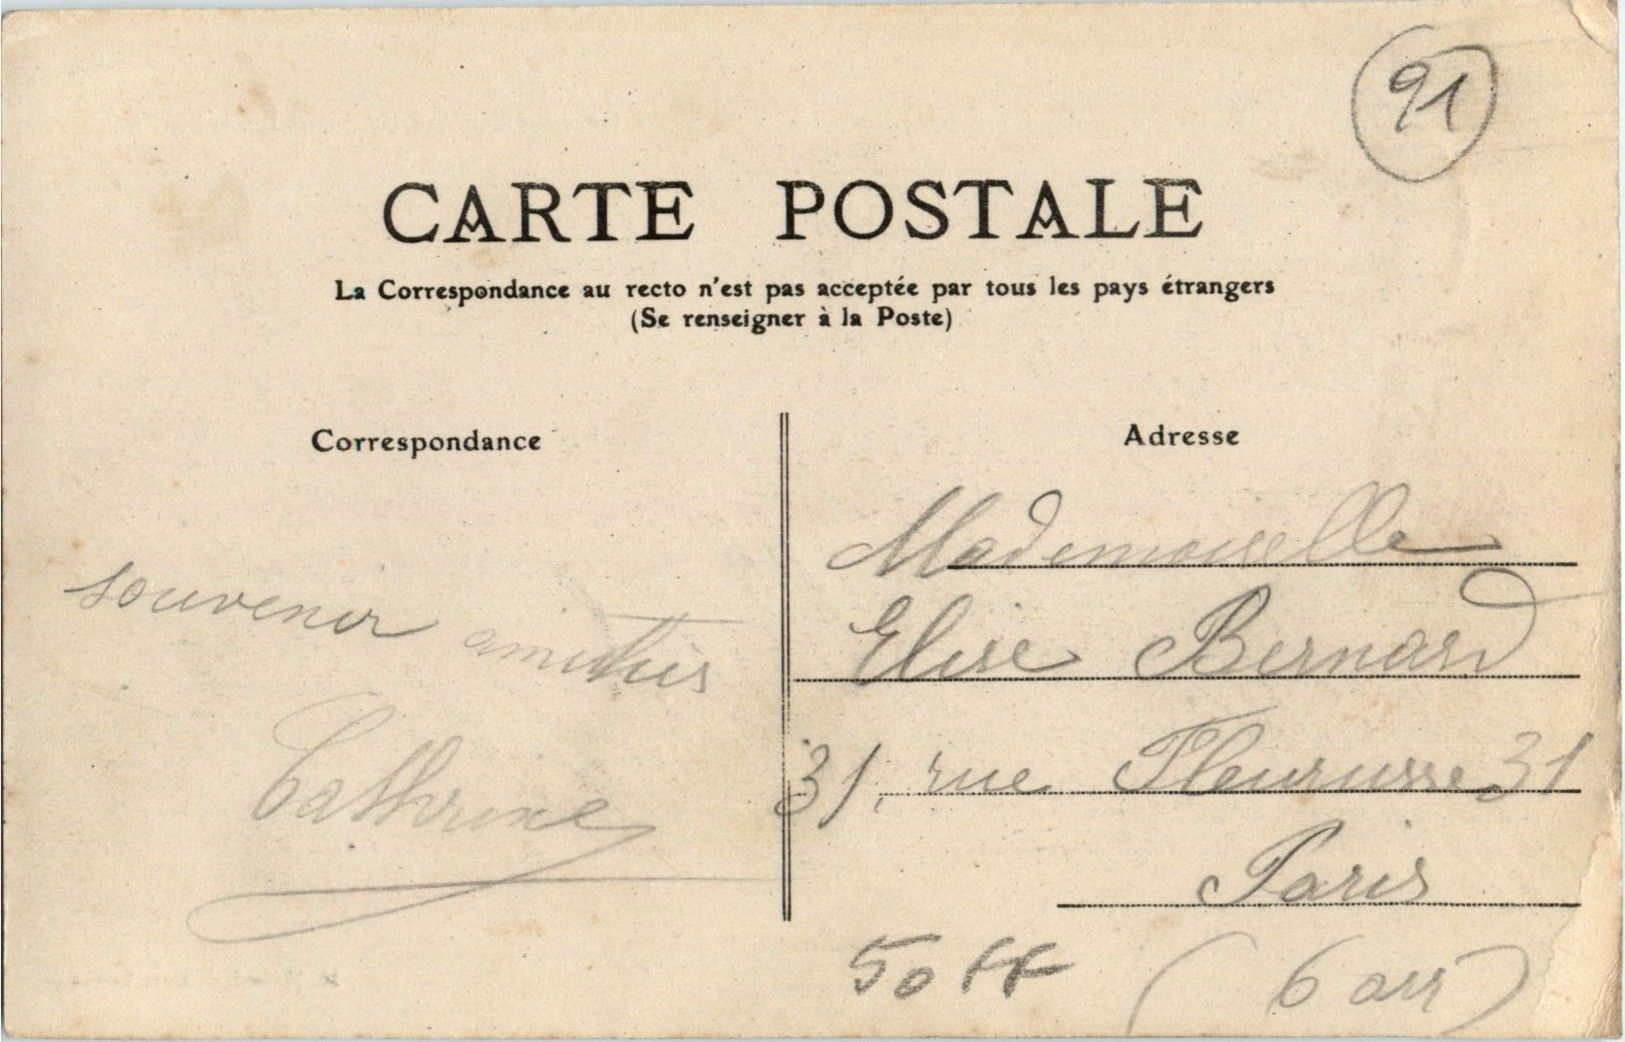 91
CARTE POSTALE
La Correspondance au recto n'est pas acceptée par tous les pays étrangers
(Se renseigner à la Poste)
Correspondance
souvenir amitiés
Cathrine
Adresse
Mademoiselle
Elise Bernard
31, rue Fleurusse 31
Paris
(6 arr)
50 FF